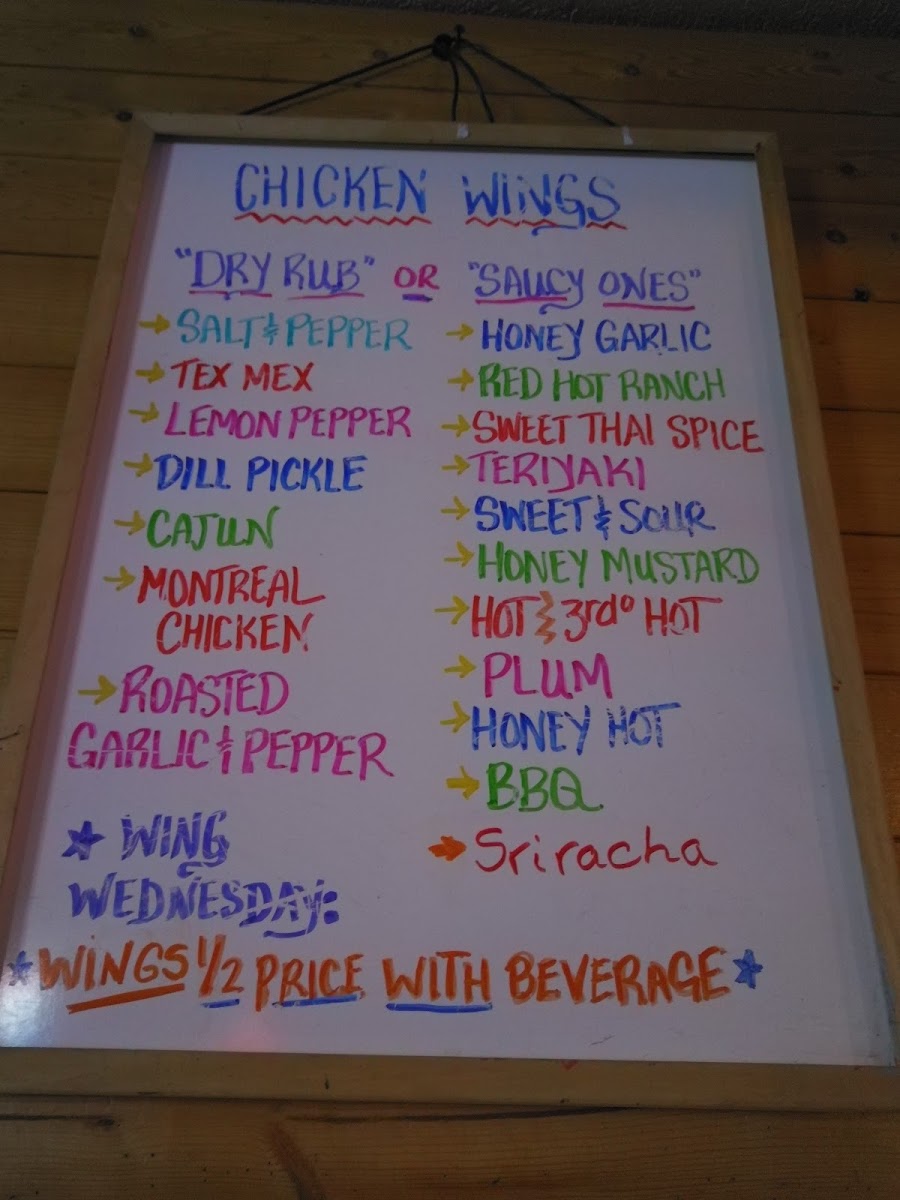 CHICKEN WINGS
"DRY RUB" OR "SAUCY ONES"
→ SALT & PEPPER
→ TEX MEX
→ LEMON PEPPER
→ DILL PICKLE
→ CAJUN
→ MONTREAL
CHICKEN
→ ROASTED
GARLIC & PEPPER
→ HONEY GARLIC
→ RED HOT RANCH
→ SWEET THAI SPICE
→ TERIYAKI
→ SWEET & SOUR
→ HONEY MUSTARD
→ HOT & 3rd° HOT
→ PLUM
→ HONEY HOT
→ BBQ
→ Sriracha
★ WING
WEDNESDAY:
★ WINGS 1/2 PRICE WITH BEVERAGE ★